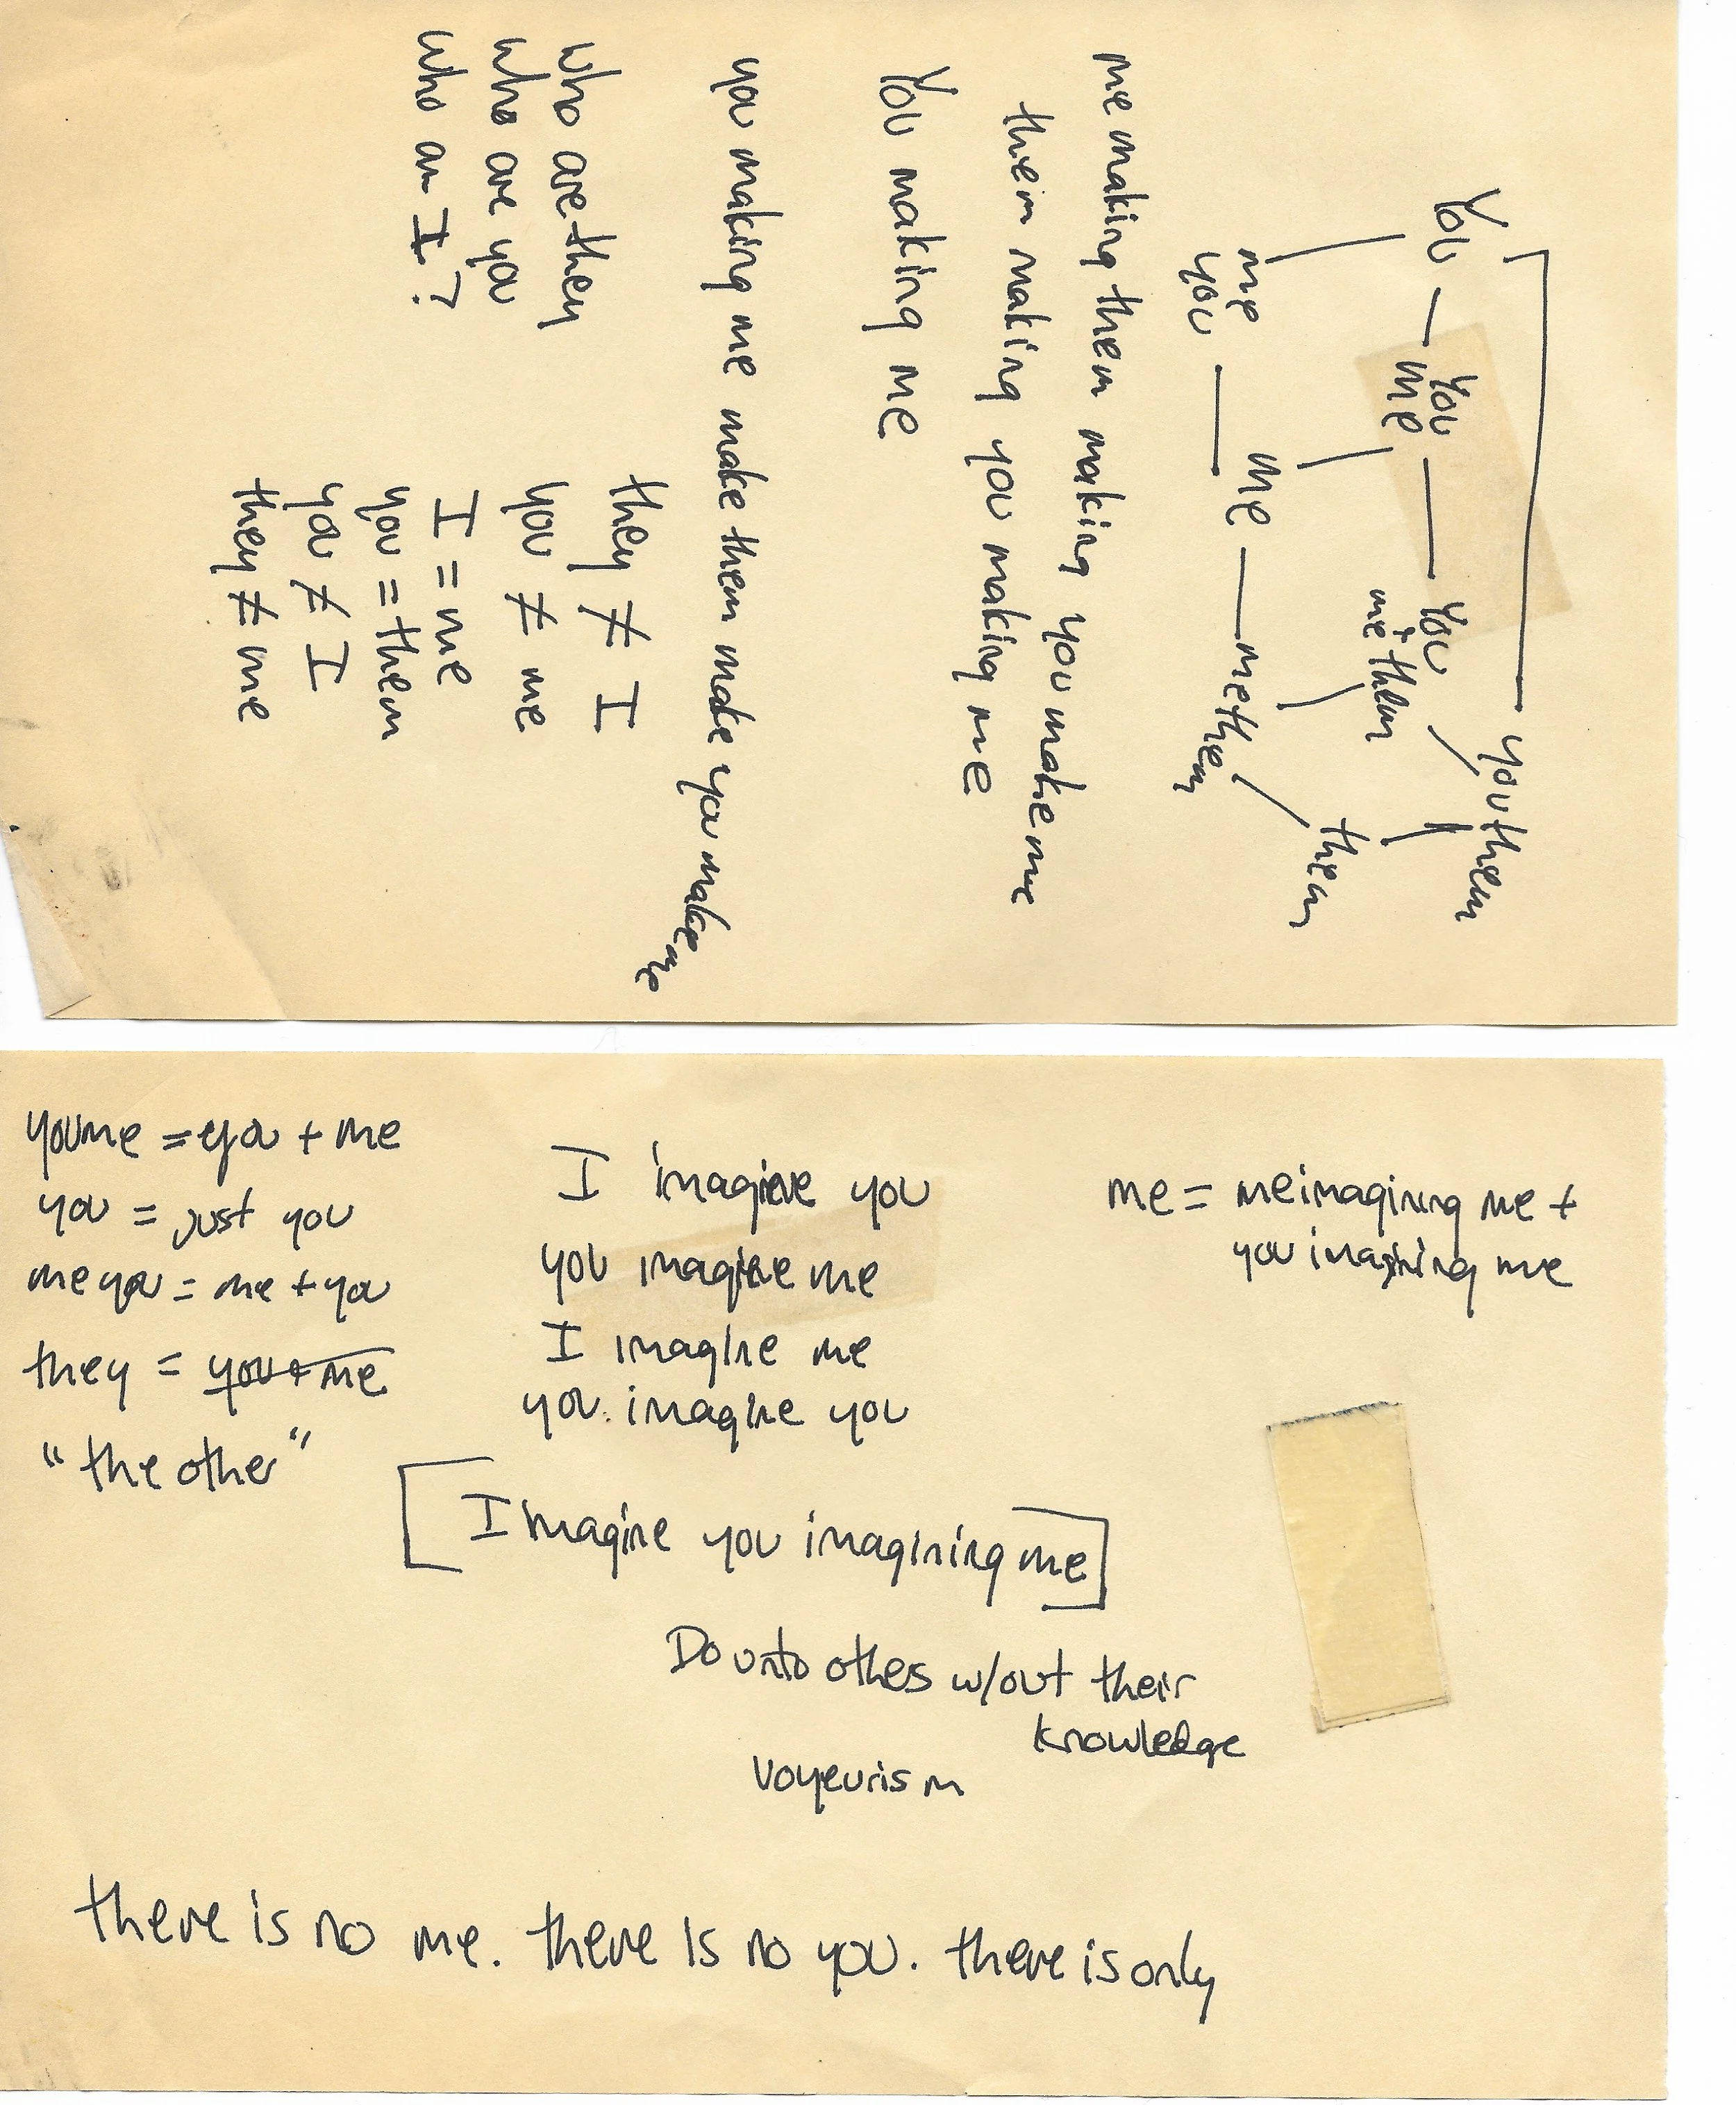 You — you me — you + me them you them
me you — me — me them them
me making them making you make me
them making you making me
You making me
you making me make them make you make me
who are they
who are you
who am I?
they ≠ I
you ≠ me
I = me
you = them
you ≠ I
they ≠ me
youme = you + me
you = just you
meyou = me + you
they = you + me
"the other"
I imagine you
you imagine me
I imagine me
you imagine you
me = me imagining me +
you imagining me
[I magine you imagining me]
Do unto others w/out their
knowledge
Voyeurism
there is no me. there is no you. there is only